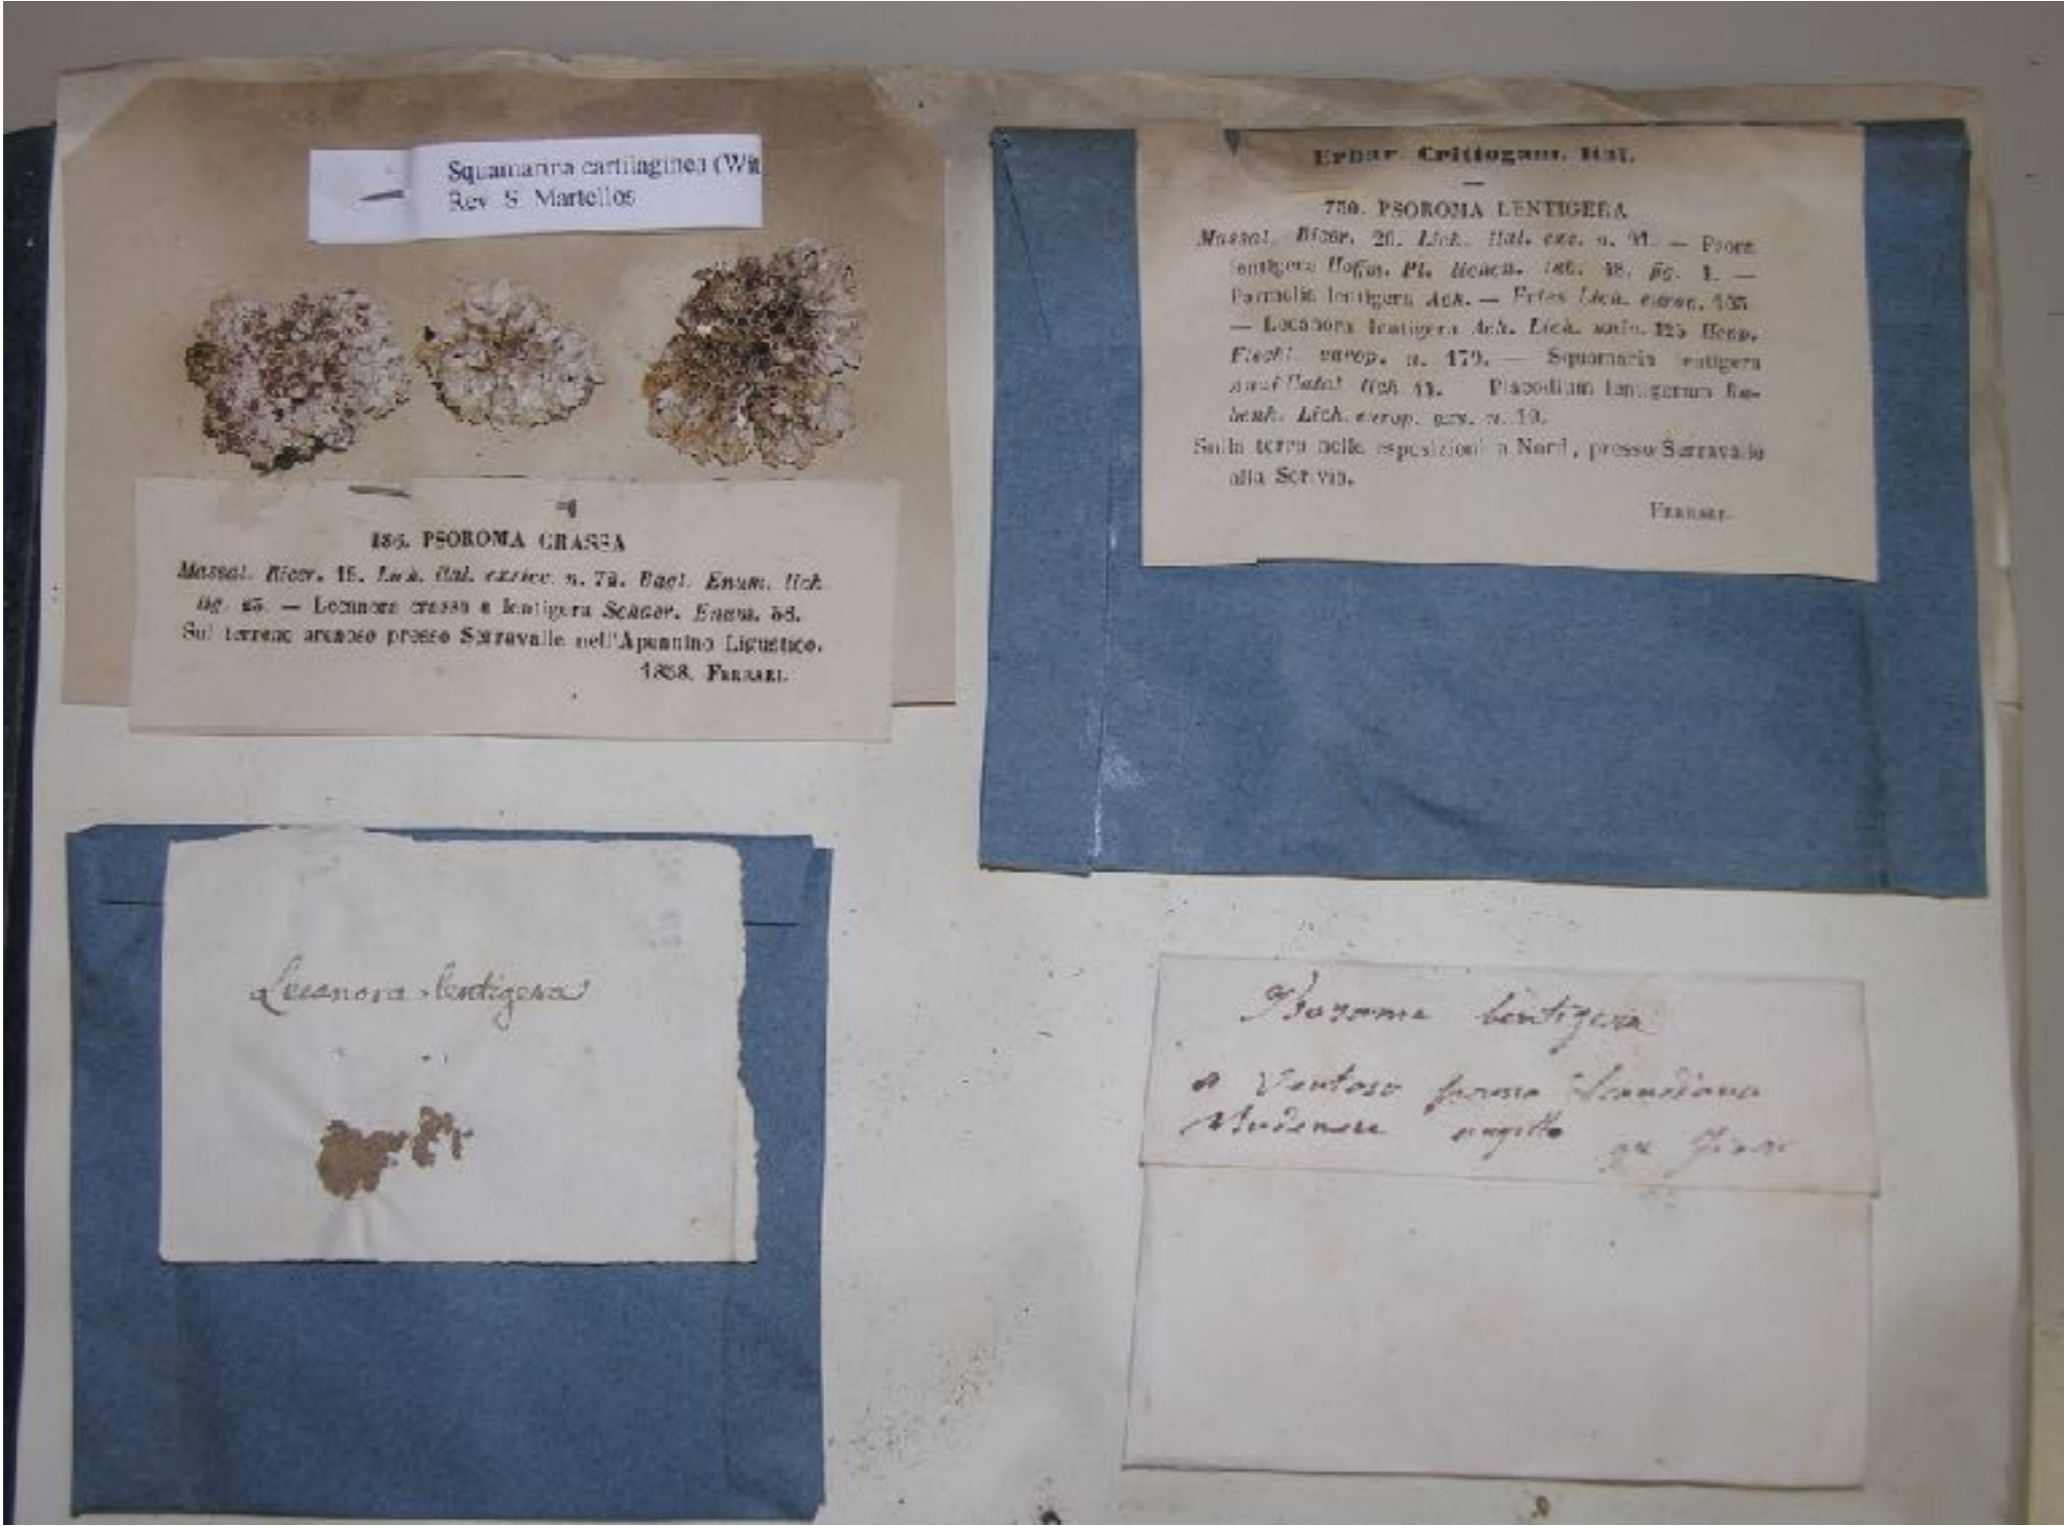 Squamarina cartilaginea (Wit
Rev. S. Martellos
186. PSOROMA CRASSA
Massal. Ricer. 16. Lich. ital. exsicc. n. 72. Bagl. Enum. lich.
lig. 25. — Lecanora crassa a lentigera Schaer. Enum. 58.
Sul terreno arenoso presso Serravalle nell'Apennino Ligustico.
1858. FERRARI.
Erbar. Crittogam. Ital.
750. PSOROMA LENTIGERA
Massal. Ricer. 20. Lich. ital. exs. n. — Psora
lentigera Hoffm. Pl. lichen. tab. 48. fig. 1. —
Parmelia lentigera Ach. — Fries Lich. europ.
— Lecanora lentigera Ach. Lich. univ. 423 Hepp.
Flecht. europ. n. 179. — Squamaria lentigera
lich. Placodium lentigerum Ra-
benh. Lich. europ. exs. n. 19.
Sulla terra nelle esposizioni a Nord, presso Serravalle
alla Scrivia.
FERRARI.
Lecanora lentigera
Psoroma lentigera
a Ventoso Scandiano